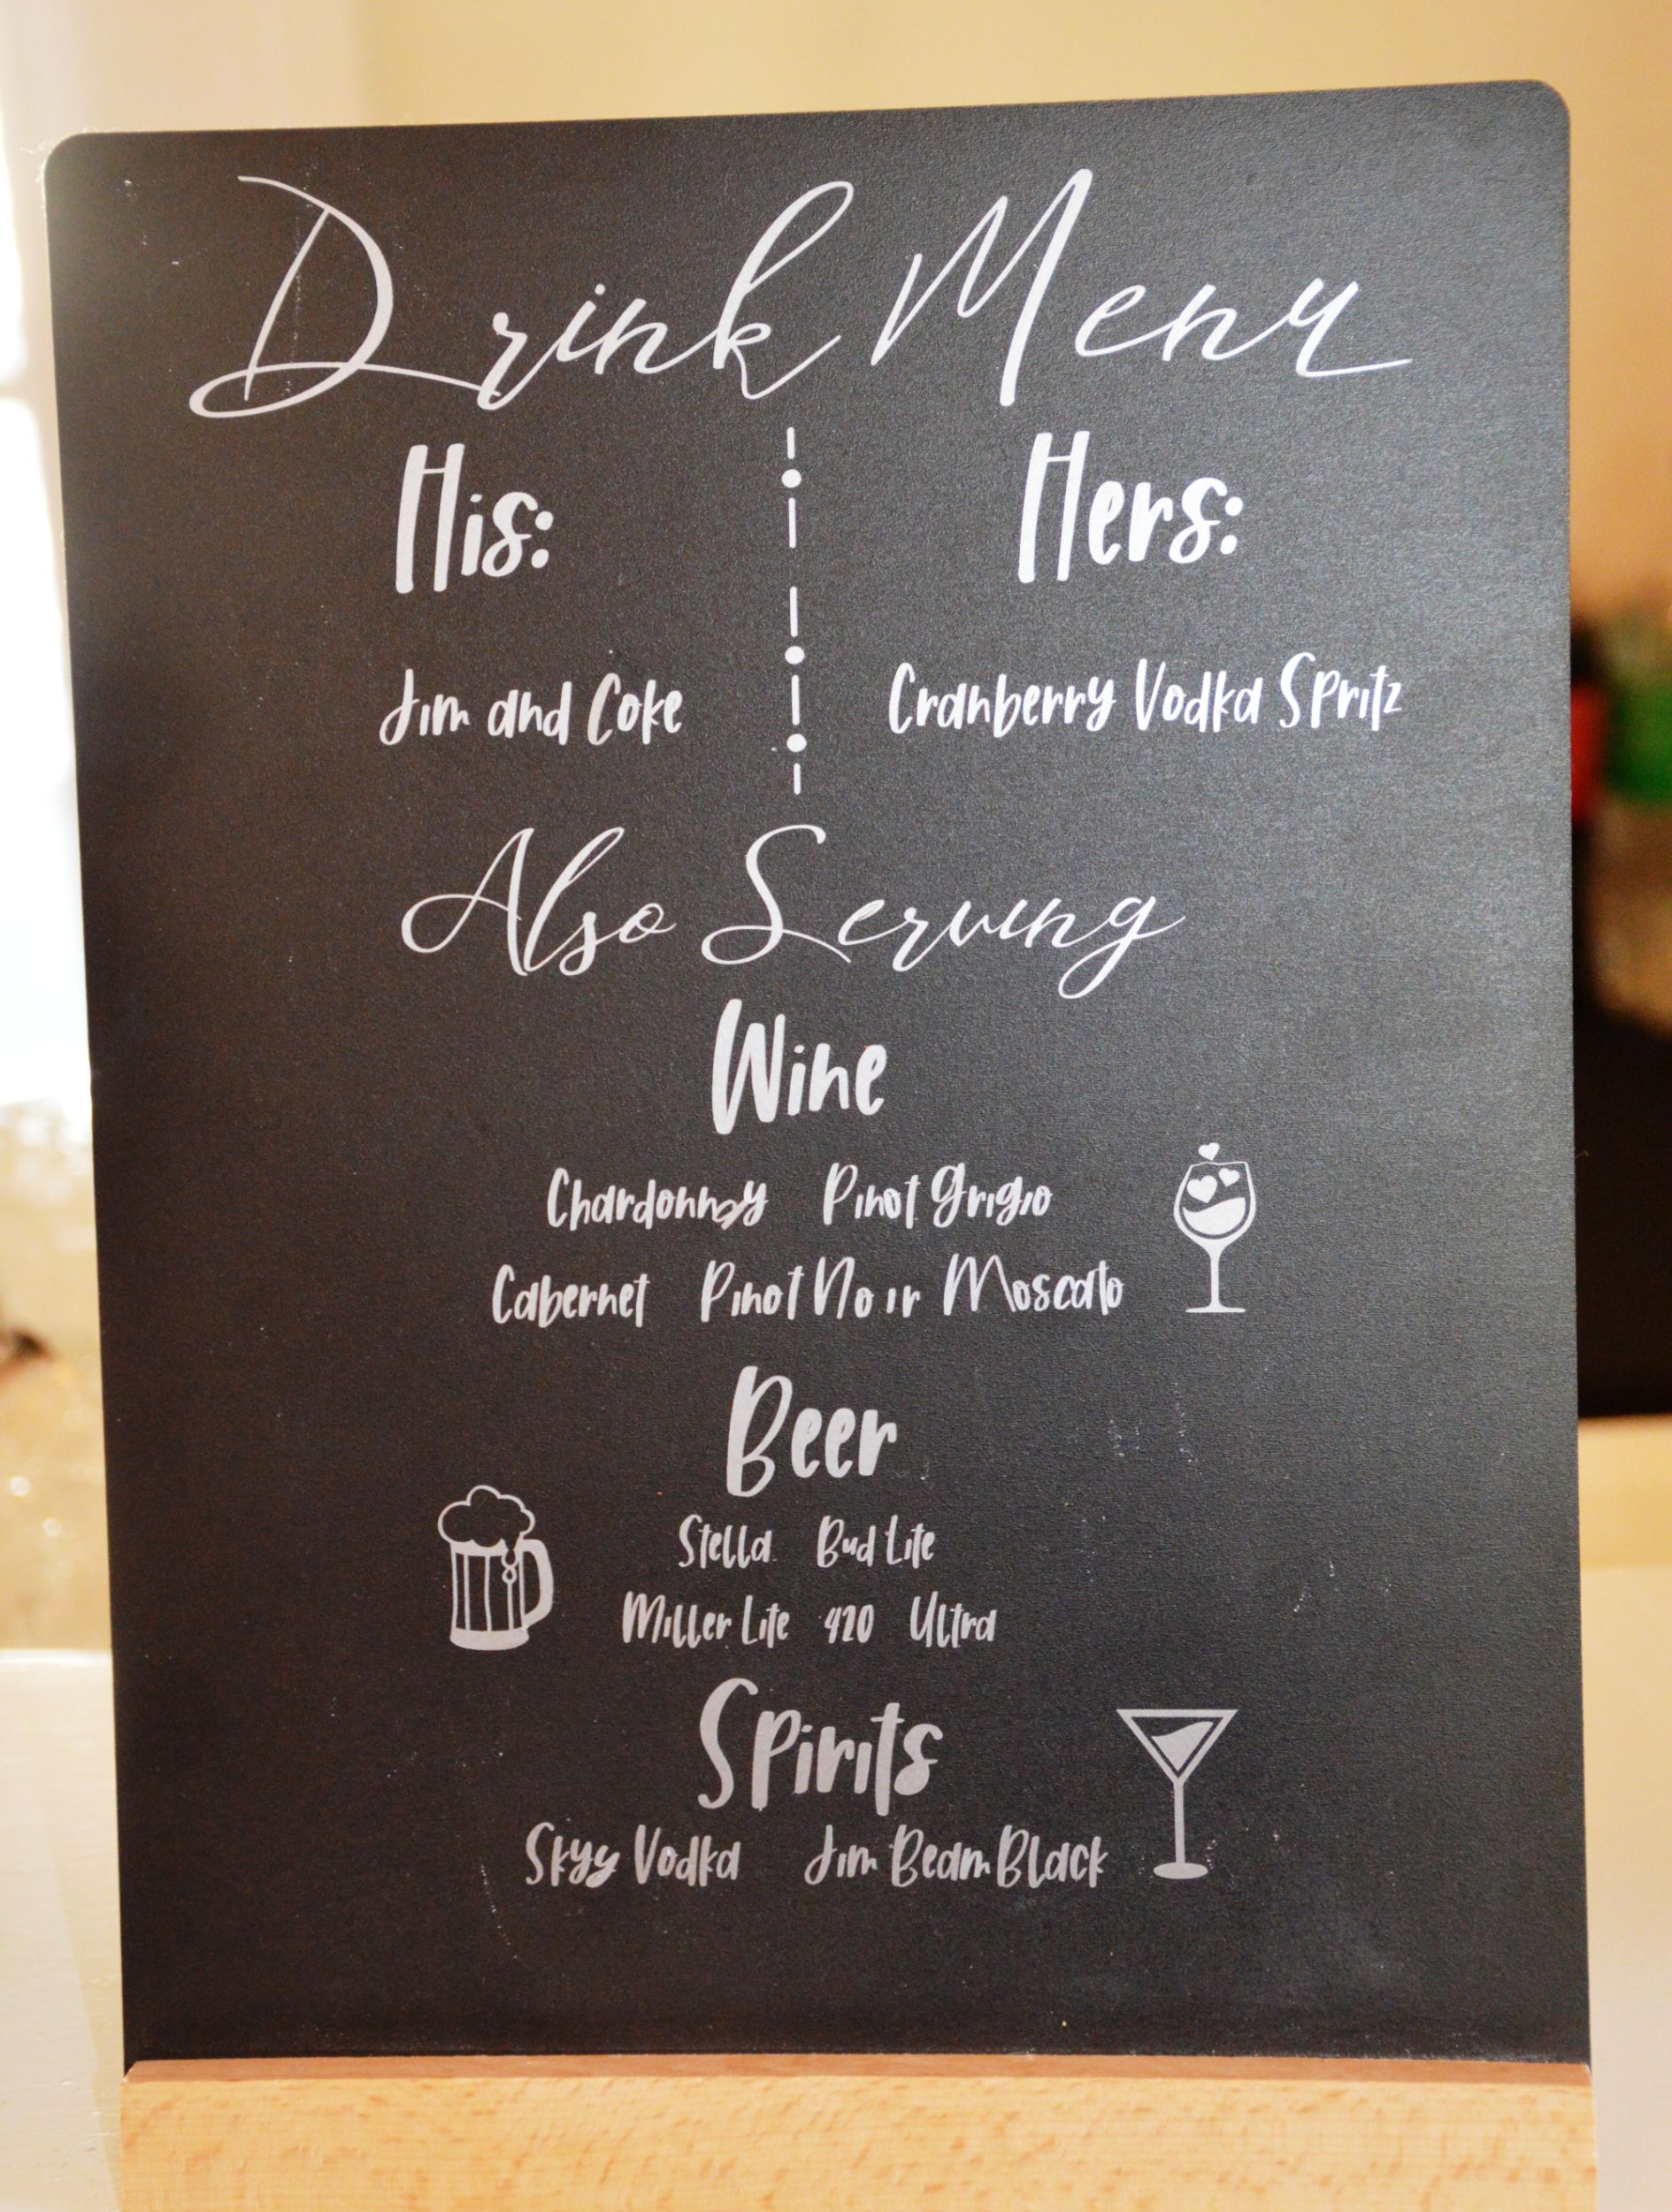 Drink Menu
His:
Hers:
Jim and Coke
Cranberry Vodka Spritz
Also Serving
Wine
Chardonnay Pinot Grigio
Cabernet Pinot Noir Moscato
Beer
Stella Bud Lite
Miller Lite 420 Ultra
Spirits
Skyy Vodka Jim Beam Black